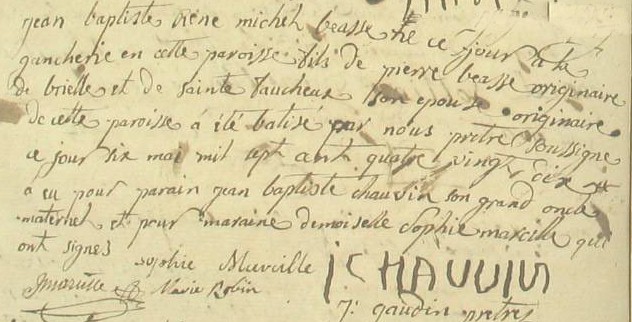 jean baptiste rene michel beasse né ce jour à la
gancherie en cette paroisse fils de pierre beasse originaire
de brielle et de sainte faucheux son epouse originaire
de cette paroisse á été batisé par nous pretre soussigné
ce jour six mai mil sept cent quatre vingt dix
a eu pour parain jean baptiste chauvin son grand oncle
maternel et pour maraine demoiselle Sophie marcille qui
ont signés
Sophie Marcille
J CHAUVIN
Marie Robin
J: gaudin pretre